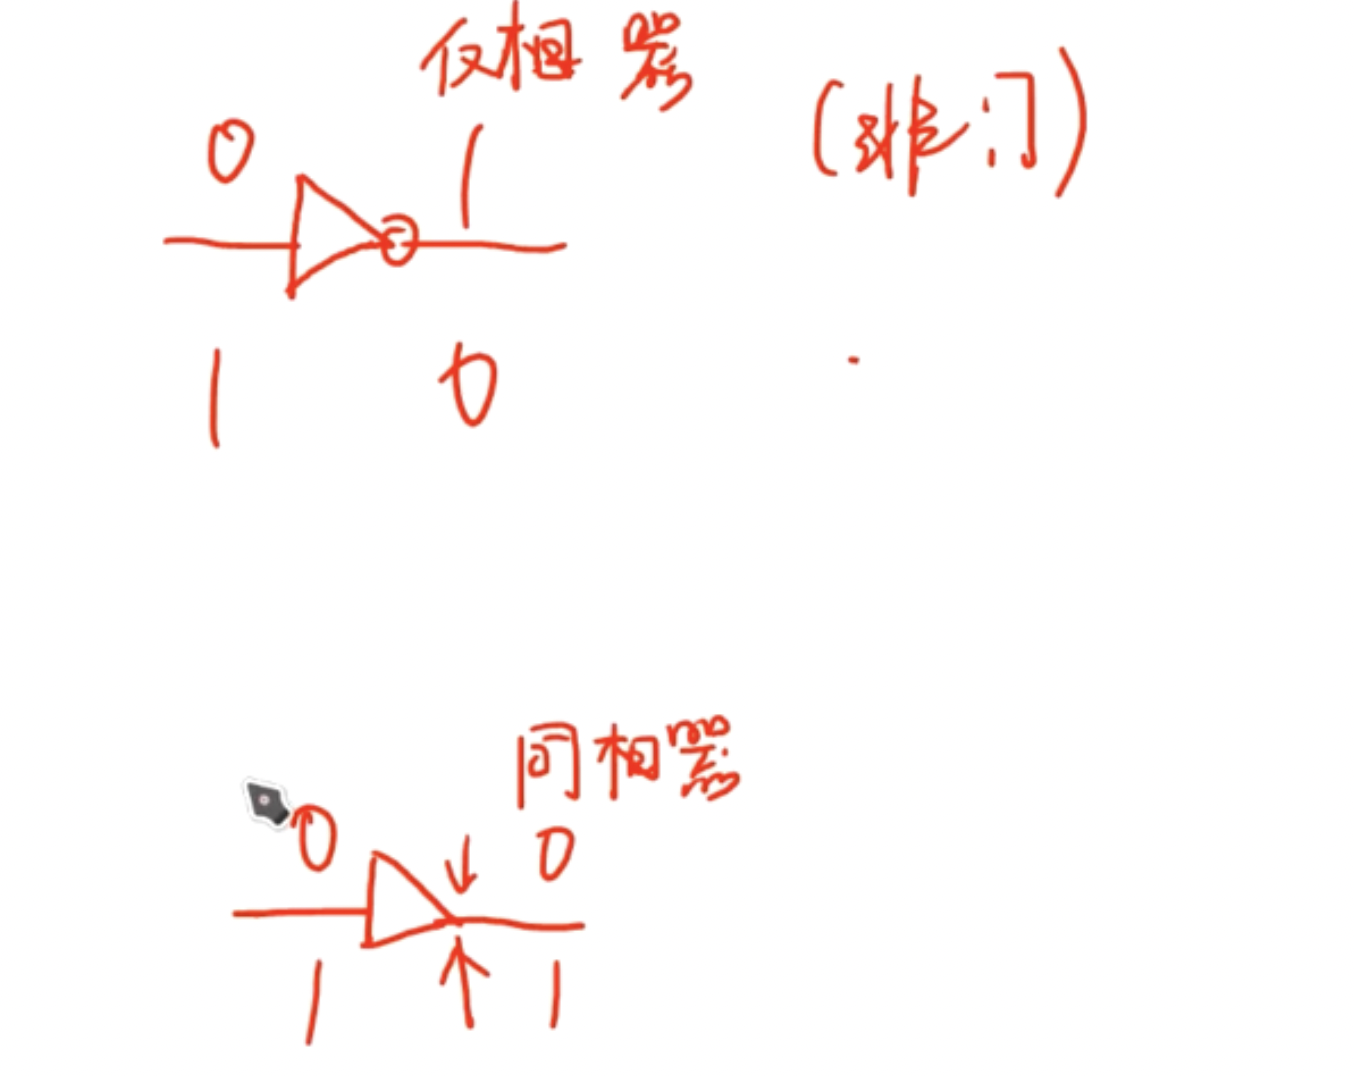 反相器
(非门)
0 1
1 0
同相器
0 0
1 1